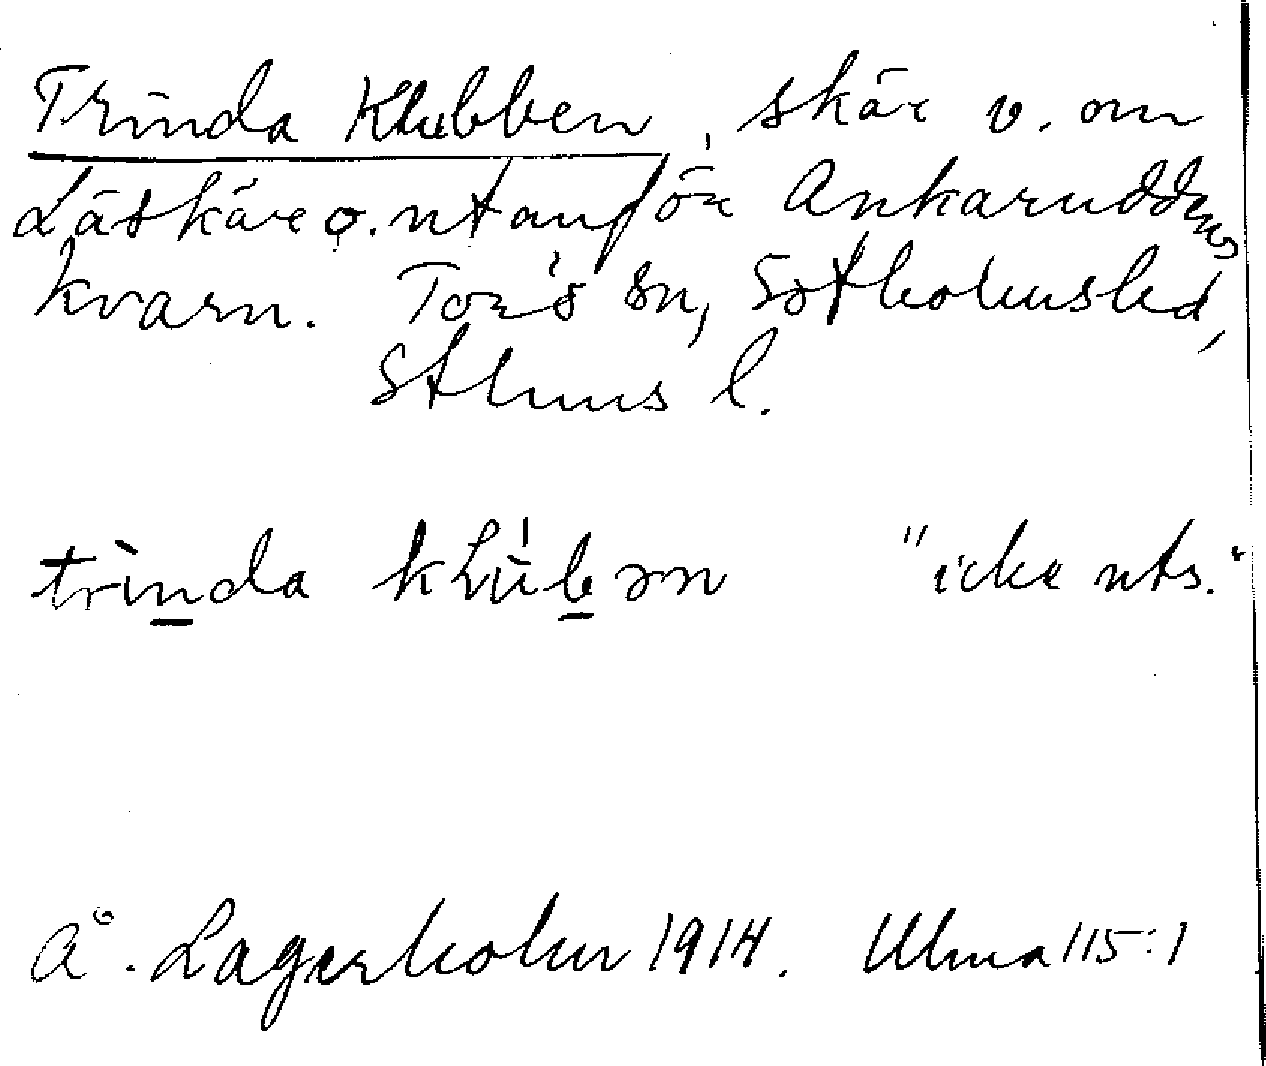 Trinda Klubben, skär v. om
Låtskär o. utanför Ankaruddens
kvarn. Torö sn, Sotholmshd,
Sthms l.
trìnda klúbən "icke uts."
Å. Lagerholm 1914. Ulma 115:1